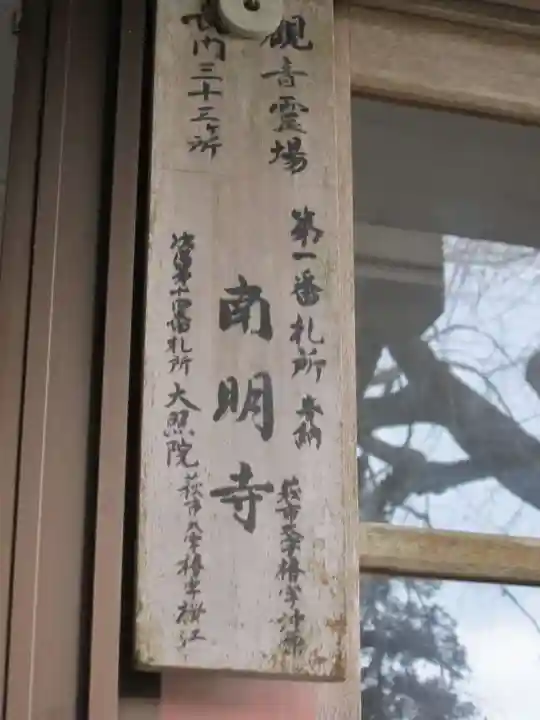 観音霊場
長門三十三ヶ所
第一番札所 奉納
萩市大字椿字沖原
南明寺
次番第十四番札所 大照院
萩市大字椿字椿江